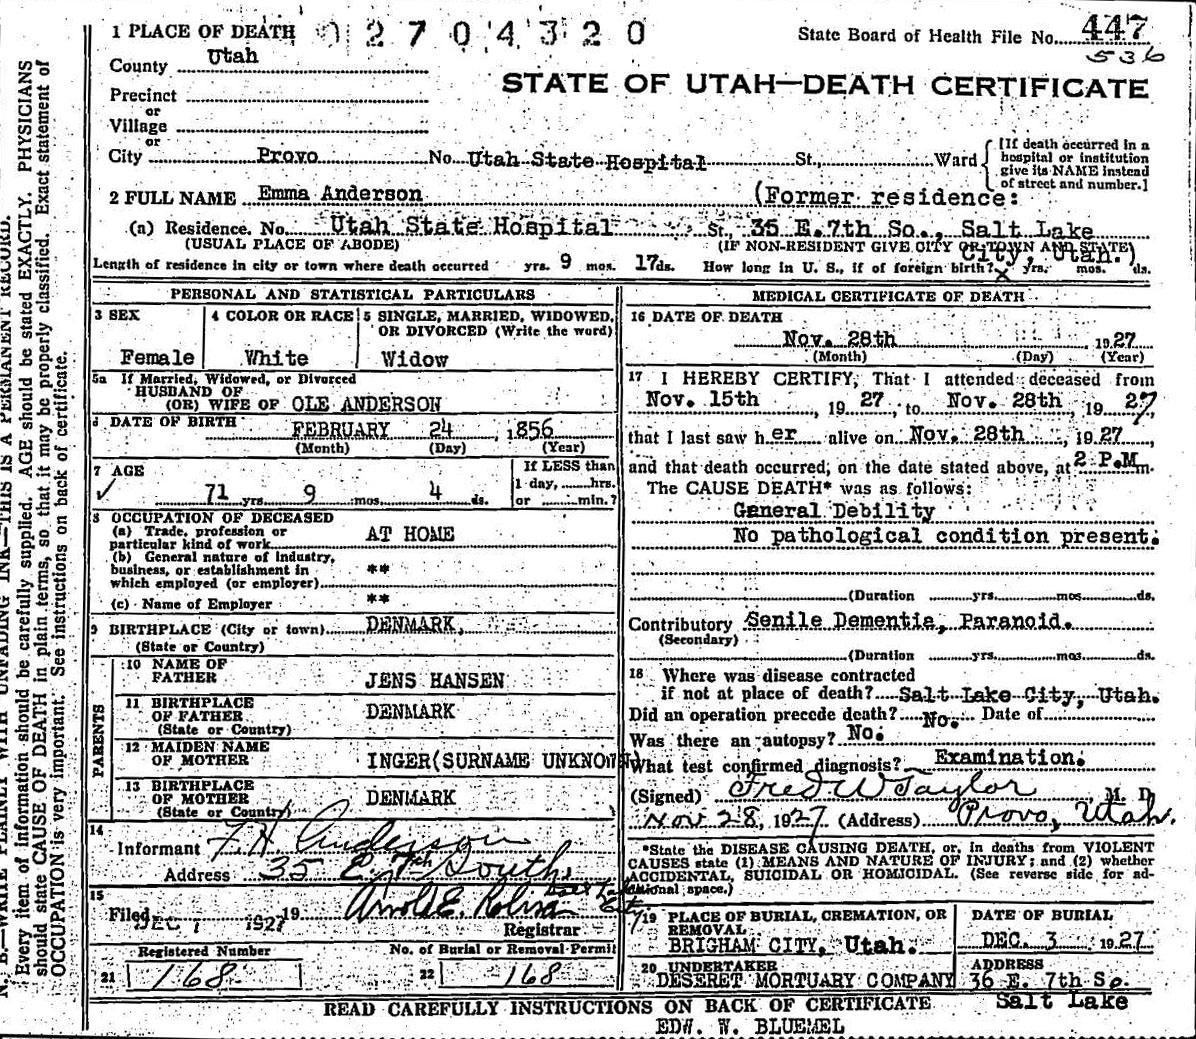 1 PLACE OF DEATH
0 2 7 0 4 3 2 0
State Board of Health File No. 447
536
County Utah
STATE OF UTAH—DEATH CERTIFICATE
Precinct
or
Village
or
City Provo No. Utah State Hospital St., Ward
[If death occurred in a hospital or institution give its NAME instead of street and number.]
2 FULL NAME Emma Anderson (Former residence:
(a) Residence. No. Utah State Hospital St., 35 E.7th So., Salt Lake
(USUAL PLACE OF ABODE) (IF NON-RESIDENT GIVE CITY OR TOWN AND STATE)
City, Utah.)
Length of residence in city or town where death occurred yrs. 9 mos. 17 ds. How long in U. S., if of foreign birth? x yrs. mos. ds.
PERSONAL AND STATISTICAL PARTICULARS
3 SEX
Female
4 COLOR OR RACE
White
5 SINGLE, MARRIED, WIDOWED, OR DIVORCED (Write the word)
Widow
5a If Married, Widowed, or Divorced
HUSBAND OF
(OR) WIFE OF OLE ANDERSON
6 DATE OF BIRTH FEBRUARY 24, 1856
(Month) (Day) (Year)
7 AGE
✓ 71 yrs. 9 mos. 4 ds.
If LESS than
1 day, hrs.
or min.?
8 OCCUPATION OF DECEASED
(a) Trade, profession or
particular kind of work AT HOME
(b) General nature of industry,
business, or establishment in
which employed (or employer) **
(c) Name of Employer **
9 BIRTHPLACE (City or town) DENMARK,
(State or Country)
PARENTS
10 NAME OF
FATHER JENS HANSEN
11 BIRTHPLACE
OF FATHER DENMARK
(State or Country)
12 MAIDEN NAME
OF MOTHER INGER(SURNAME UNKNOWN)
13 BIRTHPLACE
OF MOTHER DENMARK
(State or Country)
14
Informant Anderson
Address 35 E. 7th South.
Salt Lake City
15
Filed DEC 1 1927 19 Arnold E. Robison
Registrar
Registered Number
21 168
No. of Burial or Removal Permit
22 168
MEDICAL CERTIFICATE OF DEATH
16 DATE OF DEATH
Nov. 28th 1927
(Month) (Day) (Year)
17 I HEREBY CERTIFY, That I attended deceased from
Nov. 15th, 1927, to Nov. 28th, 1927
that I last saw her alive on Nov. 28th, 1927,
and that death occurred, on the date stated above, at 2 P.M m.
The CAUSE DEATH* was as follows:
General Debility
No pathological condition present.
(Duration yrs. mos. ds.
Contributory Senile Dementia, Paranoid.
(Secondary)
(Duration yrs. mos. ds.
18 Where was disease contracted
if not at place of death? Salt Lake City, Utah.
Did an operation precede death? No. Date of
Was there an autopsy? No.
What test confirmed diagnosis? Examination.
(Signed) Fred W Taylor M. D.
Nov 28, 1927 (Address) Provo, Utah.
*State the DISEASE CAUSING DEATH, or, in deaths from VIOLENT
CAUSES state (1) MEANS AND NATURE OF INJURY; and (2) whether
ACCIDENTAL, SUICIDAL OR HOMICIDAL. (See reverse side for ad-
ditional space.)
19 PLACE OF BURIAL, CREMATION, OR
REMOVAL
BRIGHAM CITY, Utah.
DATE OF BURIAL
DEC. 3 1927
20 UNDERTAKER
DESERET MORTUARY COMPANY
ADDRESS
36 E. 7th So.
Salt Lake
READ CAREFULLY INSTRUCTIONS ON BACK OF CERTIFICATE
EDW. W. BLUEMEL
N. B.—WRITE PLAINLY WITH UNFADING INK—THIS IS A PERMANENT RECORD.
Every item of information should be carefully supplied. AGE should be stated EXACTLY. PHYSICIANS
should state CAUSE OF DEATH in plain terms, so that it may be properly classified. Exact statement of
OCCUPATION is very important. See instructions on back of certificate.